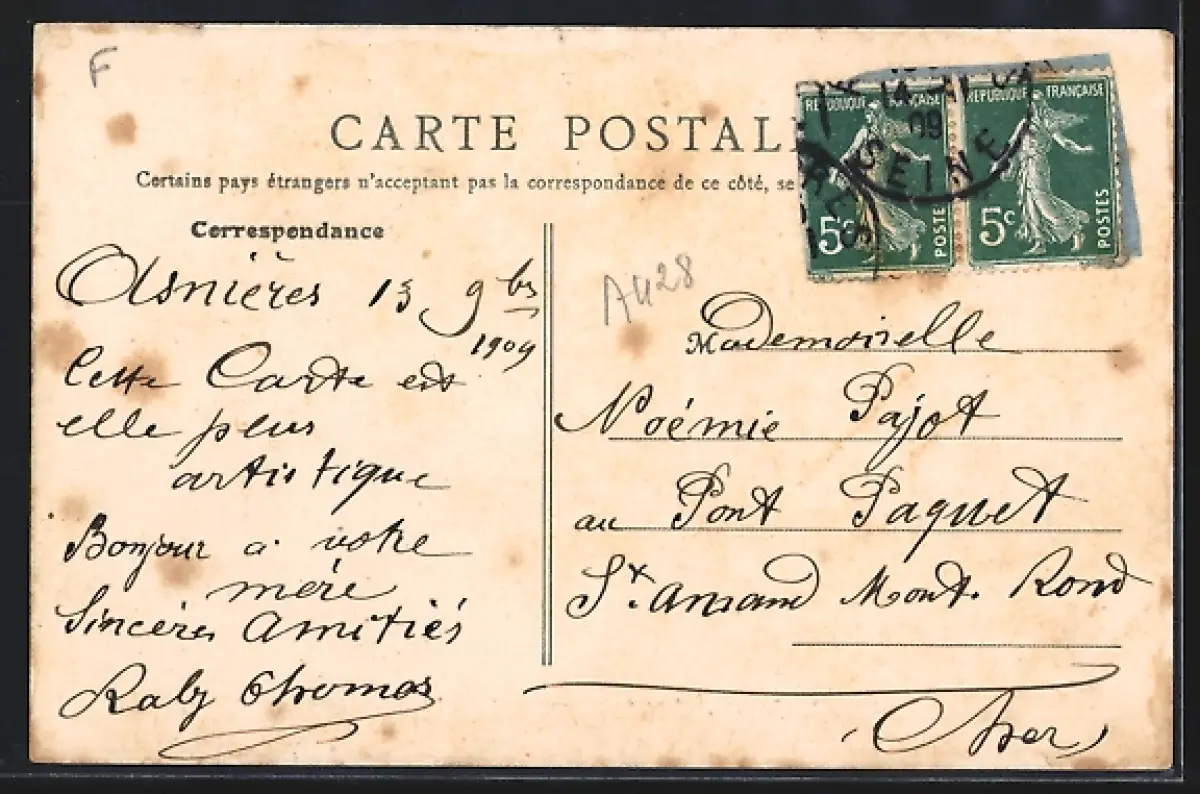 F
CARTE POSTAL
Certains pays étrangers n'acceptant pas la correspondance de ce côté, se
REPUBLIQUE FRANÇAISE
5c
POSTES
REPUBLIQUE FRANÇAISE
5c
POSTES
14 - 11
09
SEINE
Correspondance
Asnières 13 9bre
1909
Cette Carte est
elle plus
artistique
Bonjour à votre
mère
Sincères Amitiés
Thomas
A428
Mademoiselle
Noémie Pajot
au Pont Paquet
St. Amand Mont. Rond
(Cher)